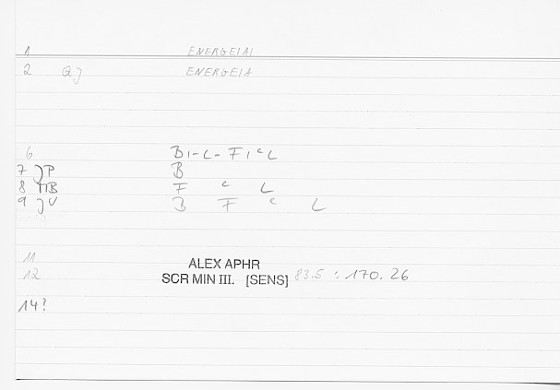 1 ENERGEIAI
2 QJ ENERGEIA
6 B1-L-F1CL
7 JP B
8 ΠB F C L
9 JV B F C L
11
12 ALEX APHR
SCR MIN III. [SENS] 83.5 : 170.26
14?